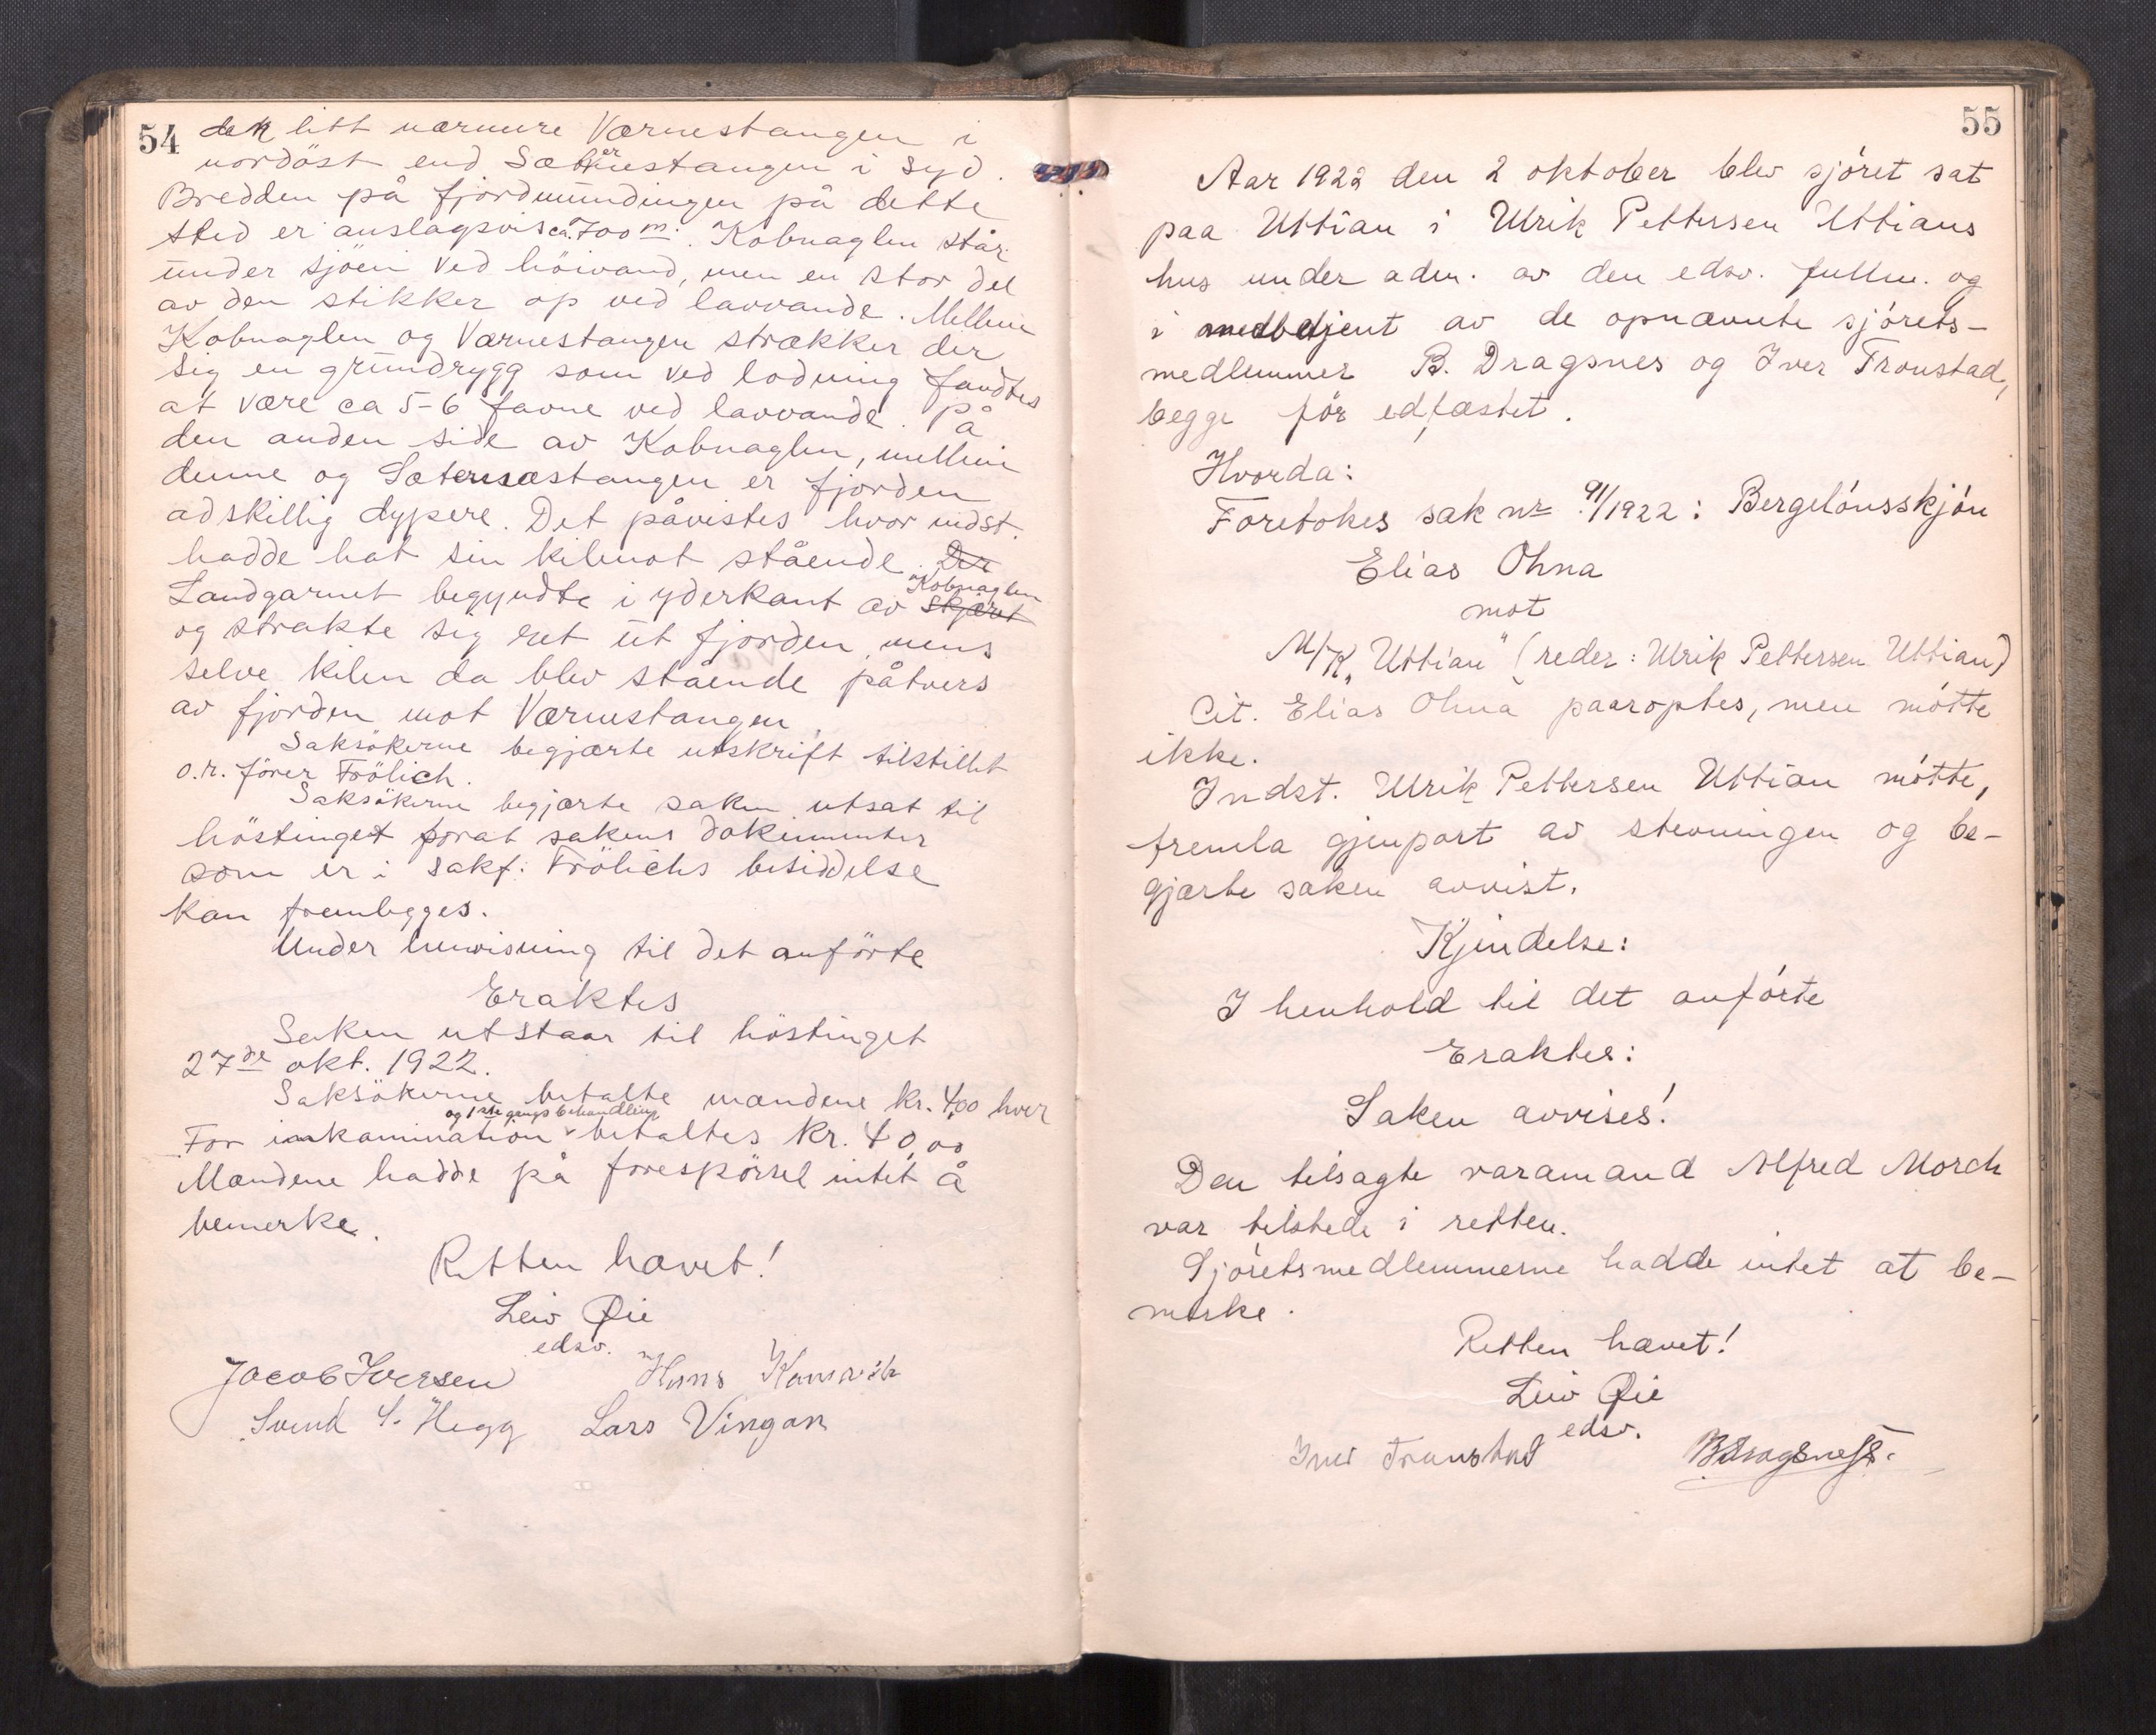 54
den litt nærmere Værnestangen i
nordöst end Sæternestangen i syd.
Bredden på fjordmundingen på dette
sted er anslagsvis ca. 700 m. Kobnaglen står
under sjöen ved höivand, men en stor del
av den stikker op ved lavvande. Mellem
Kobnaglen og Værnestangen strækker der
sig en grundrygg som ved lodning fandtes
at være ca 5-6 favne ved lavvande. På
den anden side av Kobnaglen, mellem
denne og Sæternæstangen er fjorden
adskillig dypere. Det påvistes hvor indst.
hadde hat sin kilenot stående. Der
Landgarnet begyndte i yderkant av skjæret Kobnaglen
og strakte sig ret ut fjorden, mens
selve kilen da blev stående påtvers
av fjorden mot Værnestangen.
Saksökerne begjærte utskrift tilstillet
o.r. förer Frölich.
Saksökerne begjærte saken utsat til
höstinget forat sakens dokumenter
som er i sakf. Frölichs besiddelse
kan fremlegges.
Under henvisning til det anförte
Eraktes
Saken utstaar til höstinget
27de okt. 1922.
Saksökerne betalte mændene kr. 4,00 hver
og 1ste gangs behandling
For inkamination betaltes kr. 40,00
Mændene hadde på forespörsel intet å
bemerke.
Retten hævet!
Leiv Øie
edsv.
Jacob Iversen Hans
Svend S. Hegg Lars Vingan
55
Aar 1922 den 2 oktober blev sjöret sat
paa Uttian i Ulrik Pettersen Uttians
hus under adm. av den edsv. fullm. og
i medbetjent av de opnævnte sjörets-
medlemmer B. Dragsnes og Iver Tronstad,
begge för edfæstet.
Hvorda:
Foretokes sak nr 91/1922: Bergelönsskjön
Elias Ohna
mot
M/K „Uttian" (reder: Ulrik Pettersen Uttian)
Cit. Elias Ohna paaroptes, men mötte
ikke.
Indst. Ulrik Pettersen Uttian mötte,
fremla gjenpart av stevningen og be-
gjærte saken avvist.
Kjendelse:
I henhold til det anförte
Eraktes:
Saken avvises!
Den tilsagte varamand Alfred Morch
var tilstede i retten.
Sjöretsmedlemmerne hadde intet at be-
merke.
Retten hævet!
Leiv Øie
edsv.
Iver Tronstad B Dragsnes.